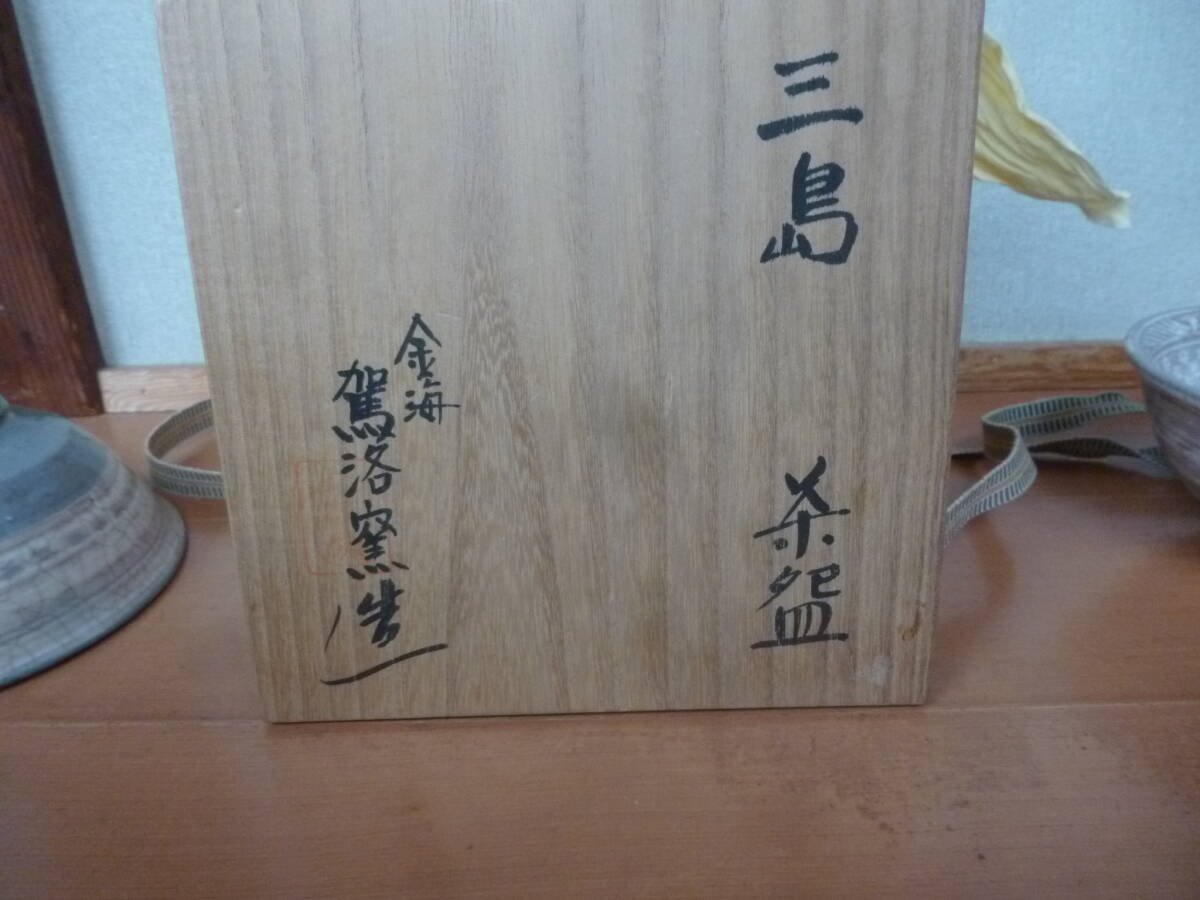 三島 茶盌
金海
駕洛窯造